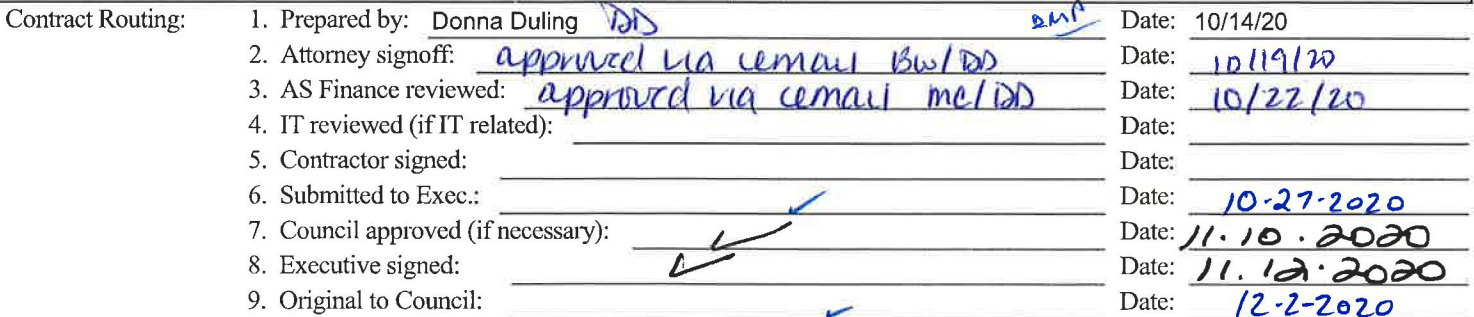 Contract Routing: 1. Prepared by: Donna Duling DD Date: 10/14/20
2. Attorney signoff: approved via email BW/DD Date: 10/19/20
3. AS Finance reviewed: approved via email mc/DD Date: 10/22/20
4. IT reviewed (if IT related): Date:
5. Contractor signed: Date:
6. Submitted to Exec.: Date: 10-27-2020
7. Council approved (if necessary): Date: 11.10.2020
8. Executive signed: Date: 11.12.2020
9. Original to Council: Date: 12-2-2020